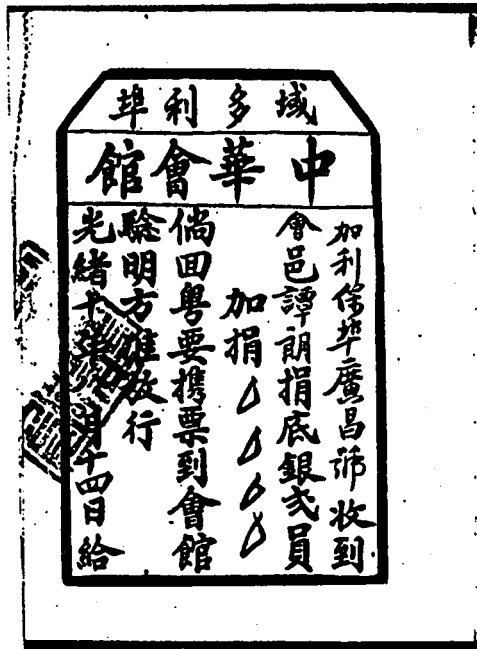 域多利埠
中華會館
加利保埠廣昌號收到
會邑譚朗捐底銀弍員
加捐
倘回粵要攜票到會館
驗明方准放行
光緒十年 月十四日給